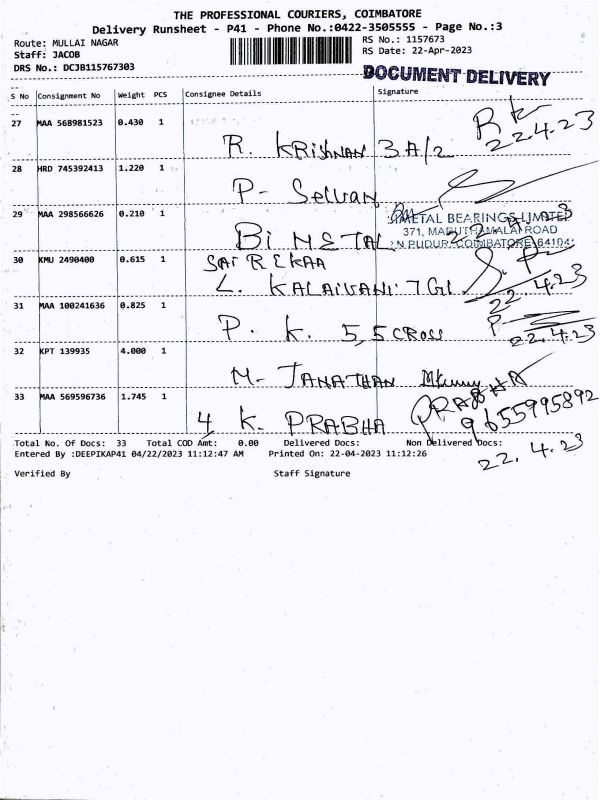 THE PROFESSIONAL COURIERS, COIMBATORE
Delivery Runsheet - P41 - Phone No.:0422-3505555 - Page No.:3
Route: MULLAI NAGAR
RS No.: 1157673
Staff: JACOB
RS Date: 22-Apr-2023
DRS No.: DCJB115767303
DOCUMENT DELIVERY
S No Consignment No Weight PCS Consignee Details Signature
27 MAA 568981523 0.430 1
R. KRISHNAN 3A/2
22.4.23
28 HRD 745392413 1.220 1
P- Selvan
29 MAA 298566626 0.210 1
BIMETAL BEARINGS LIMITED
371, MARUTHAMALAI ROAD
Bi METAL
30 KMU 2490400 0.615 1
SAI REKAA
L. KALAIVANI 7G1
22.4.23
31 MAA 100241636 0.825 1
P. K. 5,5 CROSS
22.4.23
32 KPT 139935 4.000 1
M- JANATHAN
33 MAA 569596736 1.745 1
4 K. PRABHA
PRABHA
9655995892
Total No. Of Docs: 33 Total COD Amt: 0.00 Delivered Docs: Non Delivered Docs:
22.4.23
Entered By :DEEPIKAP41 04/22/2023 11:12:47 AM Printed On: 22-04-2023 11:12:26
Verified By Staff Signature